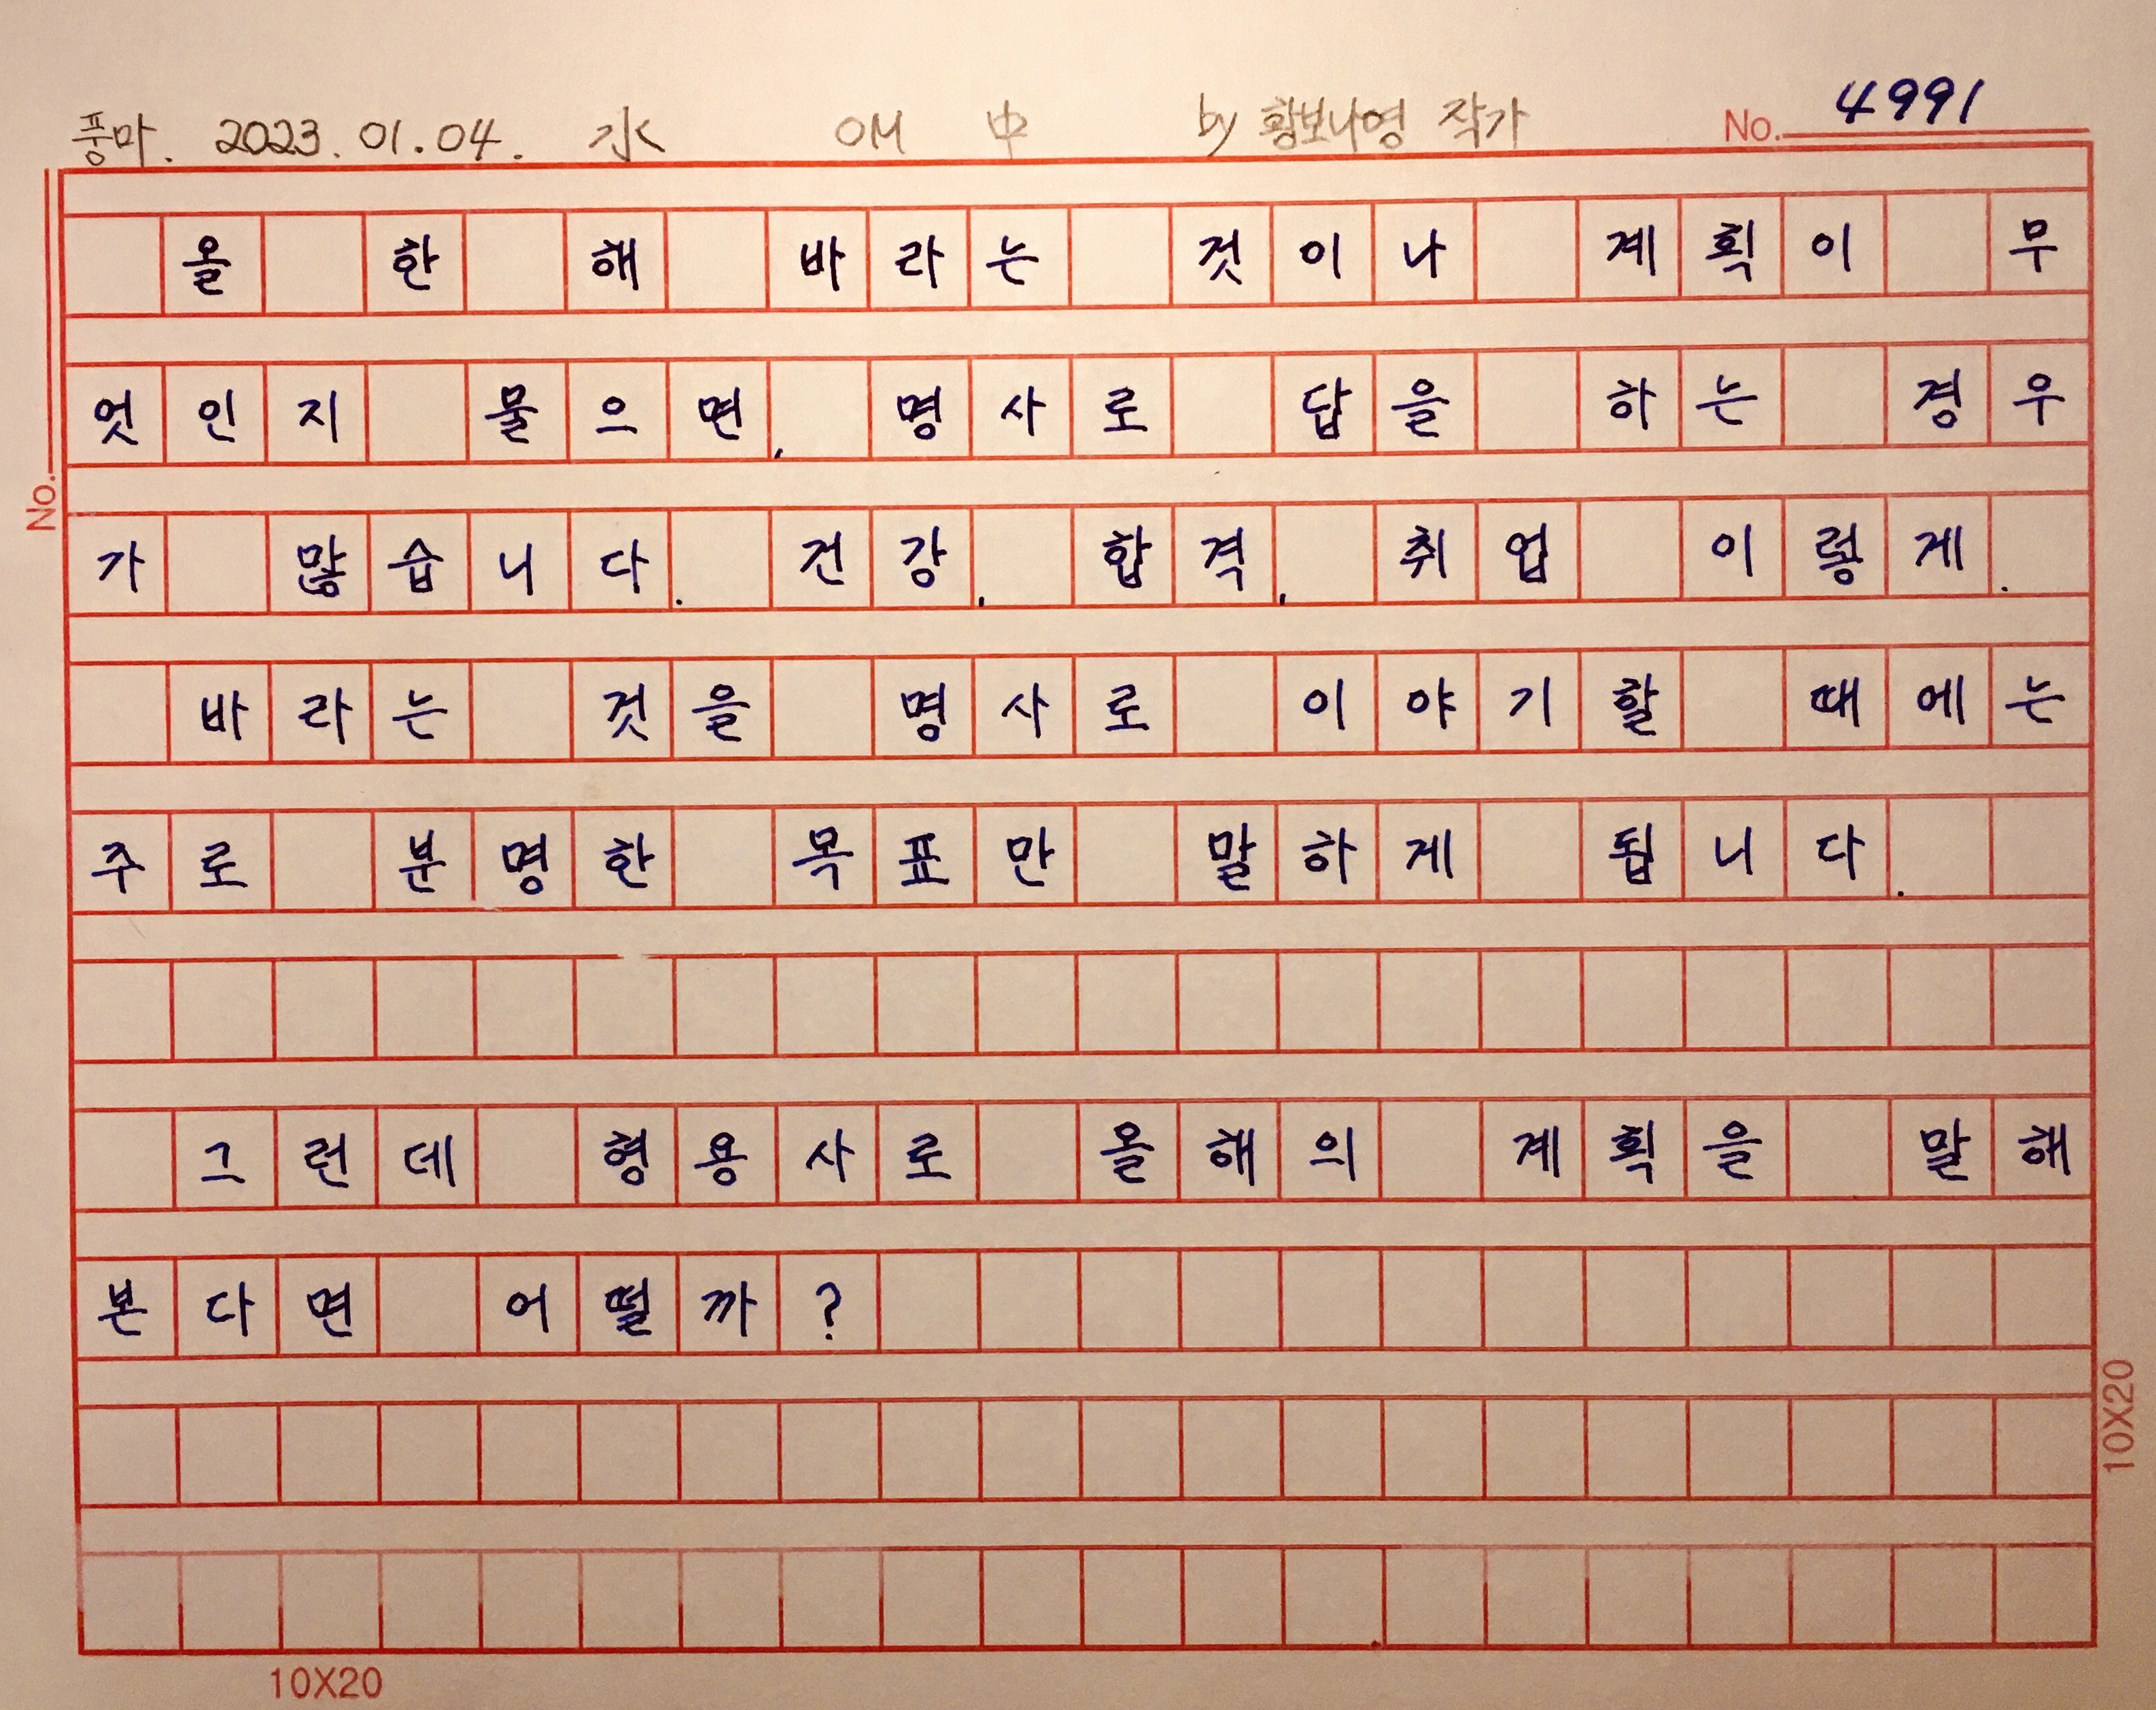 풍마. 2023. 01. 04. 水 OM 中 by 황보나영 작가 No. 4991
올 한 해 바라는 것이나 계획이 무
엇인지 물으면, 명사로 답을 하는 경우
가 많습니다. 건강, 합격, 취업 이렇게.
No.
바라는 것을 명사로 이야기할 때에는
주로 분명한 목표만 말하게 됩니다.
그런데 형용사로 올해의 계획을 말해
본다면 어떨까?
10X20
10X20